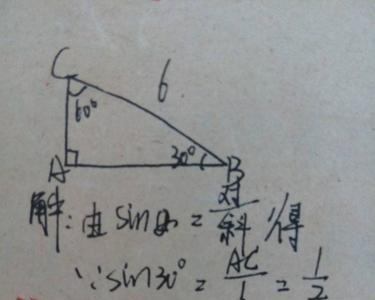 C
6
60°
A
30°
B
解:由sin = 对/斜 得
∵sin30° = AC/6 = 1/2